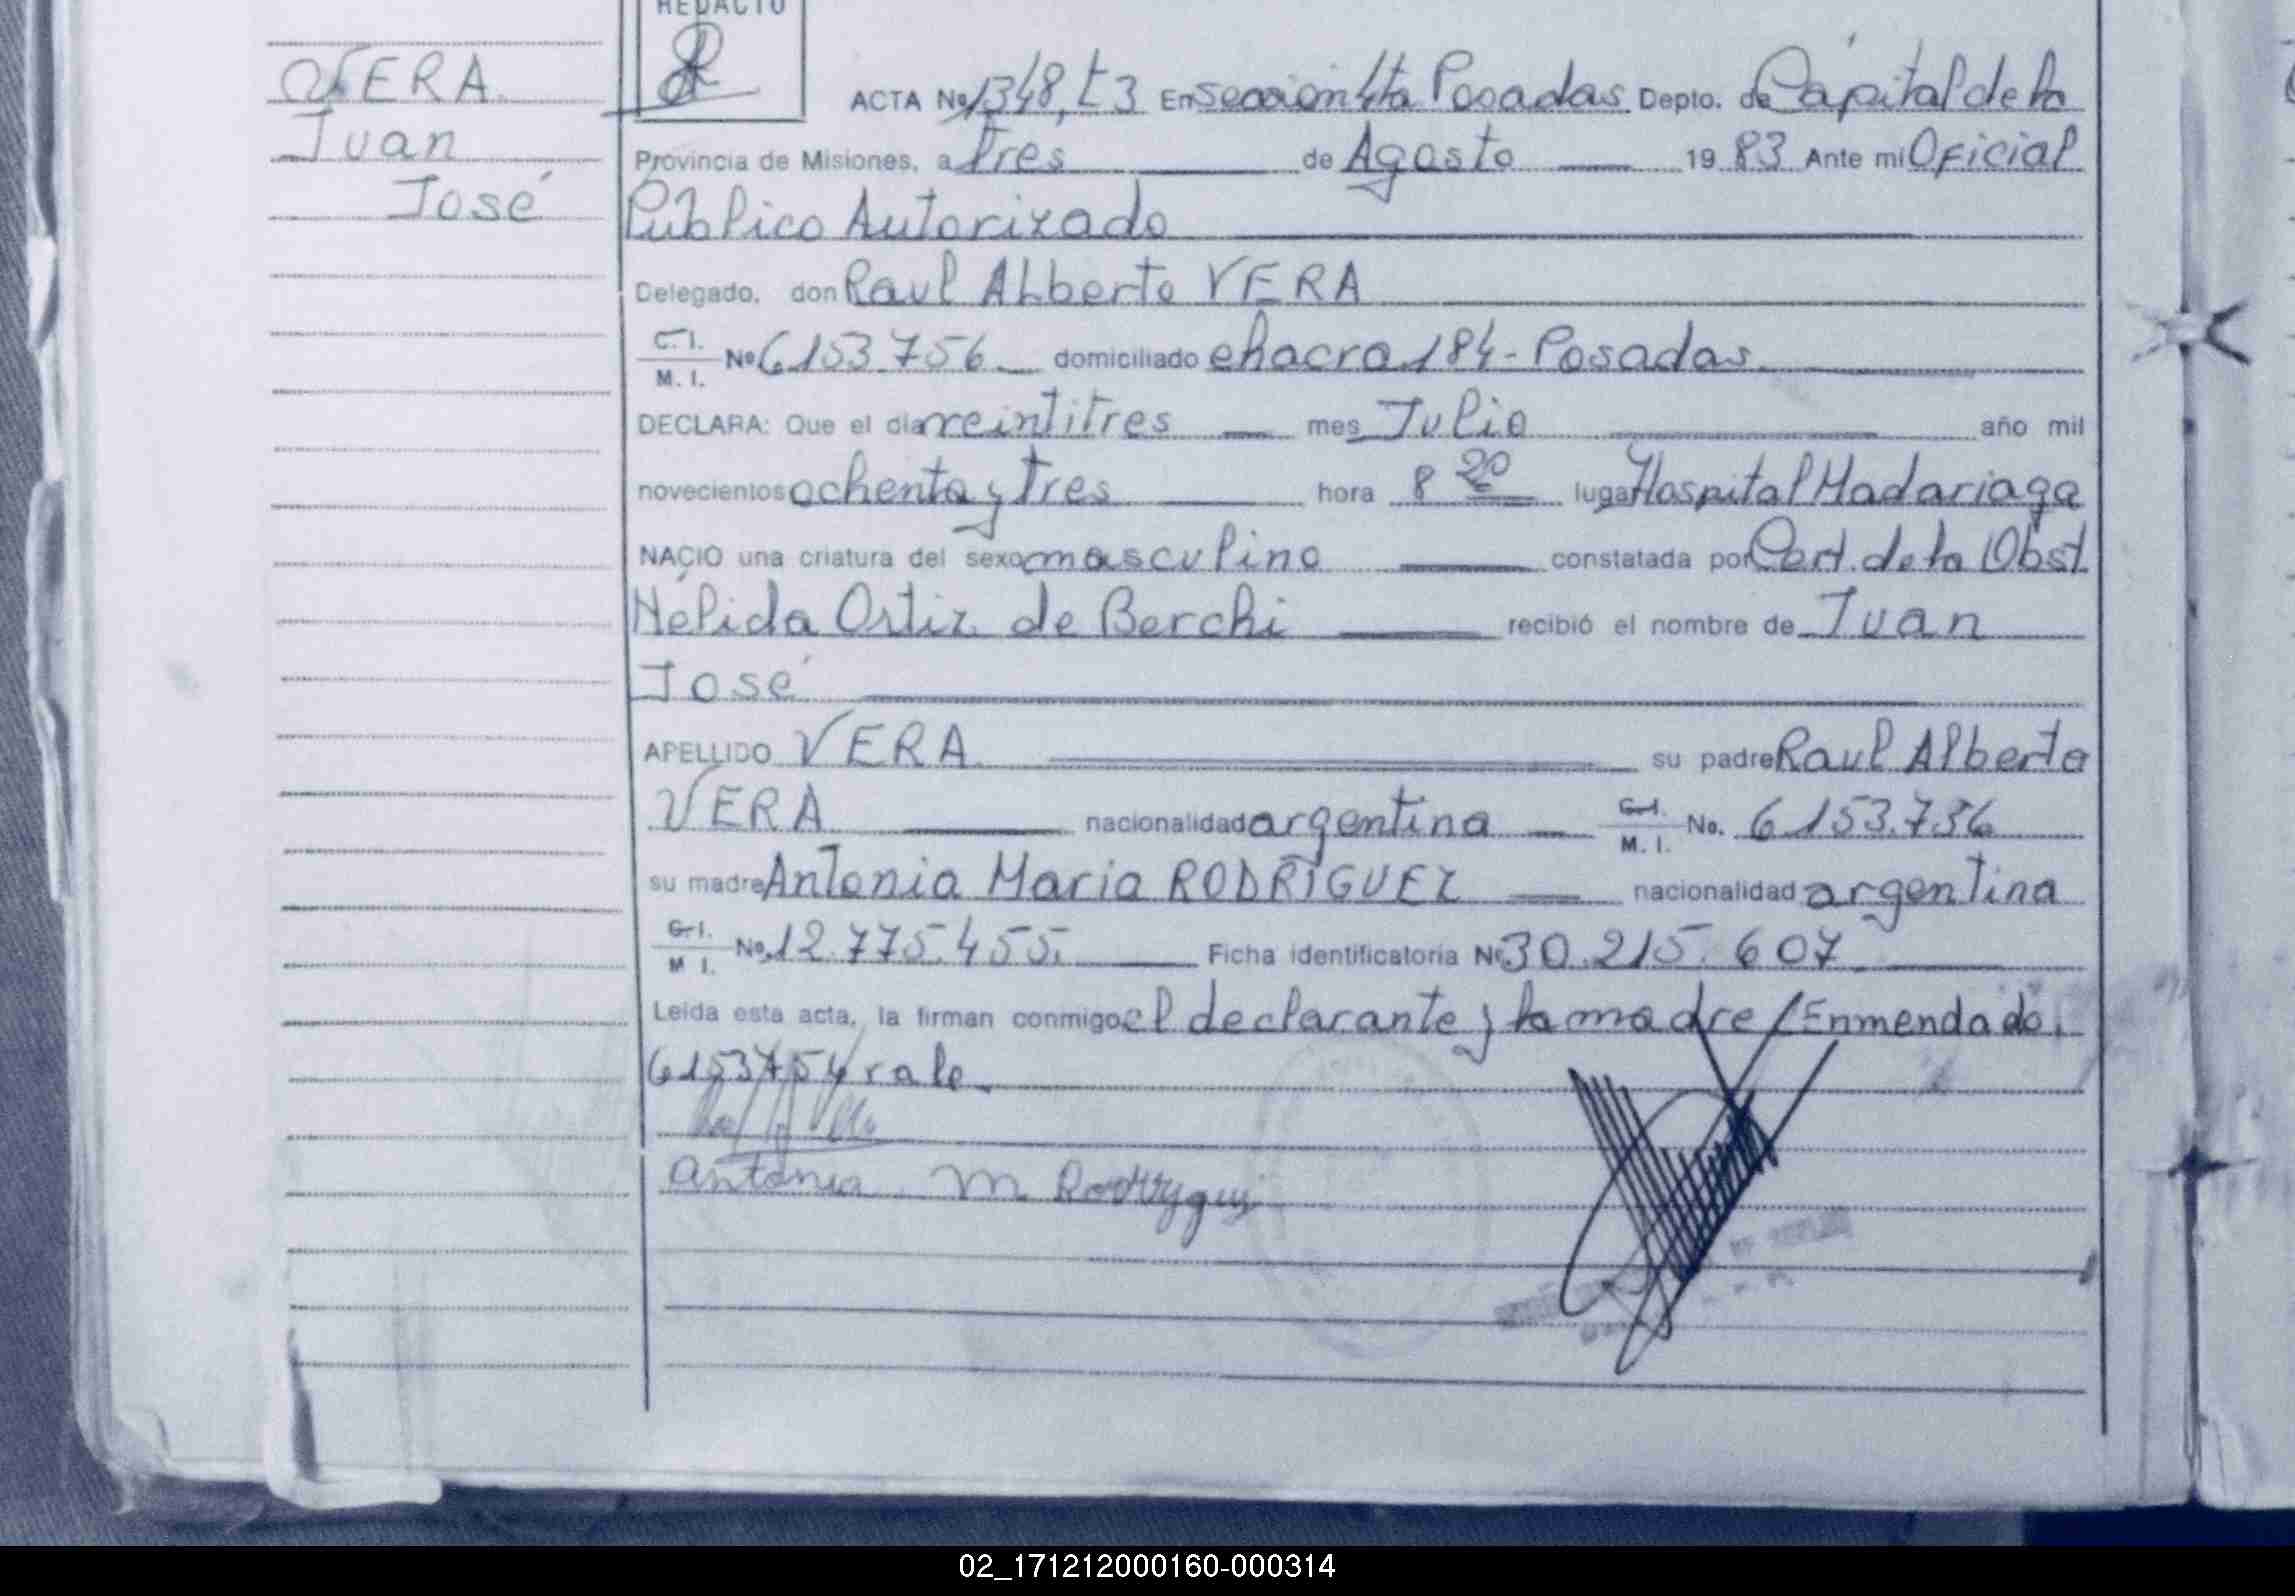 REDACTO
VERA
Juan
José
ACTA Nº 1348, t 3 En sección 4ta Posadas Depto. de Capital de la
Provincia de Misiones, a tres de Agosto 19 83 Ante mi Oficial
Público Autorizado
Delegado, don Raul Alberto VERA
C. I. / M. I. Nº 6153.756 domiciliado chacra 184 - Posadas
DECLARA: Que el día veintitres mes Julio año mil
novecientos ochenta y tres hora 8 20 lugar Hospital Madariaga
NACIO una criatura del sexo masculino constatada por Cert. de la Obst.
Nélida Ortiz de Berchi recibió el nombre de Juan
José
APELLIDO VERA su padre Raul Alberto
VERA nacionalidad argentina C. I. / M. I. No. 6153.736
su madre Antonia Maria RODRIGUEZ nacionalidad argentina
C. I. / M. I. Nº 12.775.455. Ficha identificatoria Nº 30.215.607
Leída esta acta, la firman conmigo el declarante y la madre / Enmendado.
6153754 vale.
Antonia M Rodryguez
02_171212000160-000314